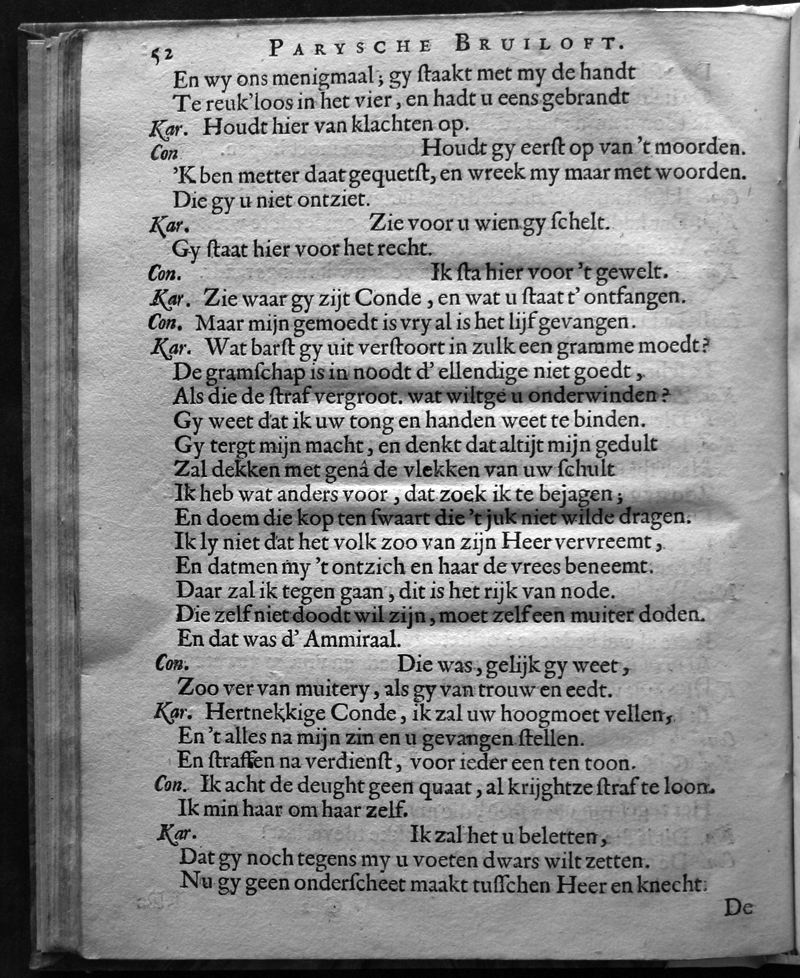 52 PARYSCHE BRUILOFT.
En wy ons menigmaal; gy ſtaakt met my de handt
Te reuk'loos in het vier, en hadt u eens gebrandt
Kar. Houdt hier van klachten op.
Con Houdt gy eerſt op van 't moorden.
'K ben metter daat gequetſt, en wreek my maar met woorden.
Die gy u niet ontziet.
Kar. Zie voor u wien gy ſchelt.
Gy ſtaat hier voor het recht.
Con. Ik ſta hier voor 't gewelt.
Kar. Zie waar gy zijt Conde, en wat u ſtaat t' ontfangen.
Con. Maar mijn gemoedt is vry al is het lijf gevangen.
Kar. Wat barſt gy uit verſtoort in zulk een gramme moedt?
De gramſchap is in noodt d' ellendige niet goedt,
Als die de ſtraf vergroot. wat wiltge u onderwinden?
Gy weet dat ik uw tong en handen weet te binden.
Gy tergt mijn macht, en denkt dat altijt mijn gedult
Zal dekken met genâ de vlekken van uw ſchult
Ik heb wat anders voor, dat zoek ik te bejagen;
En doem die kop ten ſwaart die 't juk niet wilde dragen.
Ik ly niet dat het volk zoo van zijn Heer vervreemt,
En datmen my 't ontzich en haar de vrees beneemt.
Daar zal ik tegen gaan, dit is het rijk van node.
Die zelf niet doodt wil zijn, moet zelf een muiter doden.
En dat was d' Ammiraal.
Con. Die was, gelijk gy weet,
Zoo ver van muitery, als gy van trouw en eedt.
Kar. Hertnekkige Conde, ik zal uw hoogmoet vellen,
En 't alles na mijn zin en u gevangen ſtellen.
En ſtraffen na verdienſt, voor ieder een ten toon.
Con. Ik acht de deught geen quaat, al krijght ze ſtraf te loon.
Ik min haar om haar zelf.
Kar. Ik zal het u beletten,
Dat gy noch tegens my u voeten dwars wilt zetten.
Nu gy geen onderſcheet maakt tuſſchen Heer en knecht.
De